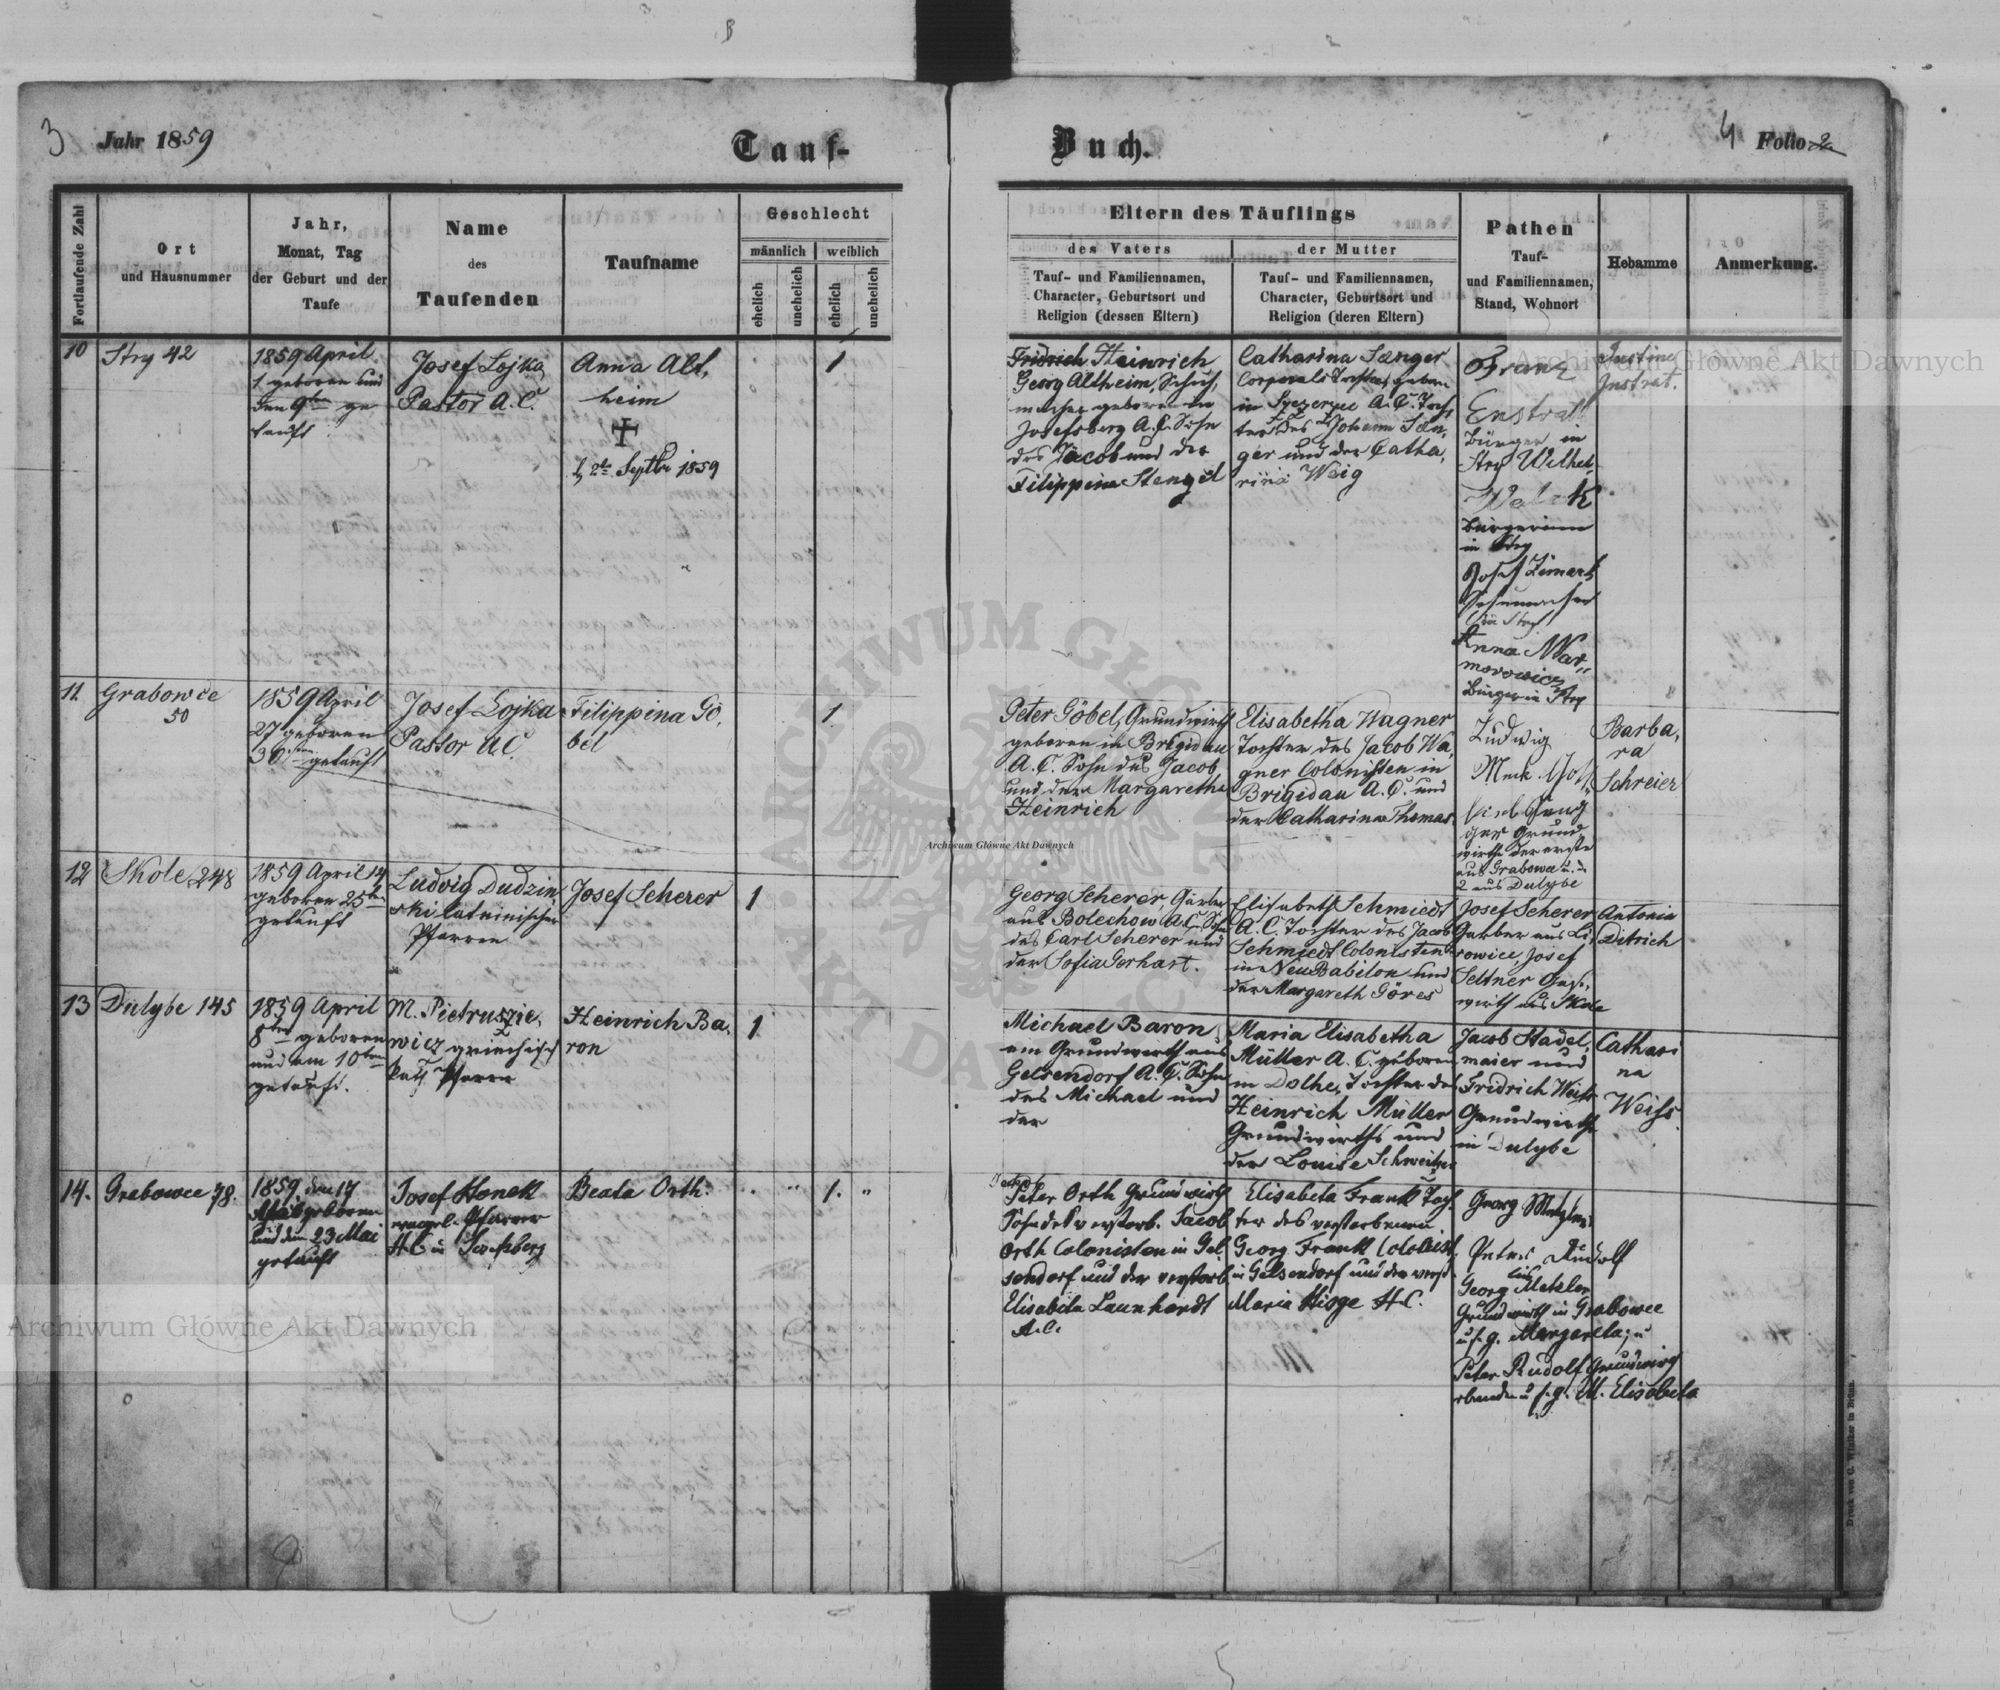 3 Jahr 1859
Tauf-
Buch.
4 Folio 2
Fortlaufende Zahl
Ort
und Hausnummer
Jahr,
Monat, Tag
der Geburt und der
Taufe
Name
des
Taufenden
Taufname
Geschlecht
männlich
weiblich
ehelich
unehelich
ehelich
unehelich
Eltern des Täuflings
des Vaters
Tauf- und Familiennamen,
Character, Geburtsort und
Religion (dessen Eltern)
der Mutter
Tauf- und Familiennamen,
Character, Geburtsort und
Religion (deren Eltern)
Pathen
Tauf-
und Familiennamen,
Stand, Wohnort
Hebamme
Anmerkung.
10
Stry 42
1859 April
1 geboren und
den 9ten ge
tauft
Josef Lojka
Pastor A. C.
Anna Alt,
heim
2te Septbr 1859
1
Fridrich Heinrich
Georg Altheim, Schuh,
macher geboren in
Josefsberg A. C. Sohn
des Jacob und der
Filippina Stengel
Catharina Sænger
Corporals Tochter geboren
in A. C. Toch,
ter des Johann Sæn,
ger und der Catha,
rina Weig
Franz
Enstrat
Bürger in
Stry Wilhel.
Bürgerinn
in Stry
Josef
Schumacher
in Stry
Anna Mar,
morowicz
Bürgerin Stry
Justine
Instrat.
11
Grabowce
50
1859 April
27 geboren
30sten getauft
Josef Lojka
Pastor A. C.
Filippina Gö,
bel
1
Peter Göbel, Grundwirth
geboren in Brigidau
A. C. Sohn des Jacob
und der Margaretha
Heinrich
Elisabetha Wagner
Tochter des Jacob Wa,
gner Colonisten in
Brigidau A. C. und
der Catharina Thomas.
Ludwig
Meck
ger Grund,
wirthe der erste
aus Grabowce u. d.
2 aus Dulybe
Barba,
ra
Schreier
12
Skole 248
1859 April 14
geboren 25ten
getauft
Ludvig Dudzin,
ski lateinischer
Pfarrer
Josef Scherer
1
Georg Scherer Gärber
aus Bolechow A. C. Sohn
des Carl Scherer und
der Sofia Gerhart.
Elisabeth Schmiedt
A. C. Tochter des Jacob
Schmiedt Colonisten
in Neu Babilon und
der Margareth Göres
Josef Scherer
Garber aus Li,
rowice, Josef
Seltner Gast,
wirth aus Skole
Antonia
Ditrich
13
Dulybe 145
1859 April
8ten geboren
und am 10ten
getauft.
M. Pietruszie,
wicz griechisch
kath Pfarrer
Heinrich Ba,
ron
1
Michael Baron
ein Grundwirth aus
Gelsendorf A. C. Sohn
des Michael und
der
Maria Elisabetha
Müller A. C. geboren
in Dolhe, Tochter des
Heinrich Müller
Grundwirths und
der Louise Schweitzer
Jacob Stadel,
maier und
Fridrich Weiss
Grundwirthe
in Dulybe
Cathari
na
Weiss
14.
Grabowce 78.
1859, den 17
April geboren
und den 23 Mai
getauft
Josef Honek
evangel. Pfarrer
H C in Josefsberg
Beata Orth.
1.
Peter Orth Grundwirth
Sohn des verstorb. Jacob
Orth Colonisten in Gel
sendorf und der verstorb
Elisabeta Launhardt
A. C.
Elisabeta Frank Toch,
ter des verstorbenen
Georg Frank Colonist
in Gelsendorf und der verst.
Maria Higge H. C.
Georg Metzler,
Peter Rudolf
Georg Metzler
Grundwirth in Grabowce
u. s. g. Margareta; u
Peter Rudolf Grundwirth
ebenda u s. g. M. Elisabeta
Druck von C. Winiker in Brünn.
Archiwum Główne Akt Dawnych
Archiwum Główne Akt Dawnych
Archiwum Główne Akt Dawnych
ARCHIWUM GŁÓWNE AKT DAWNYCH